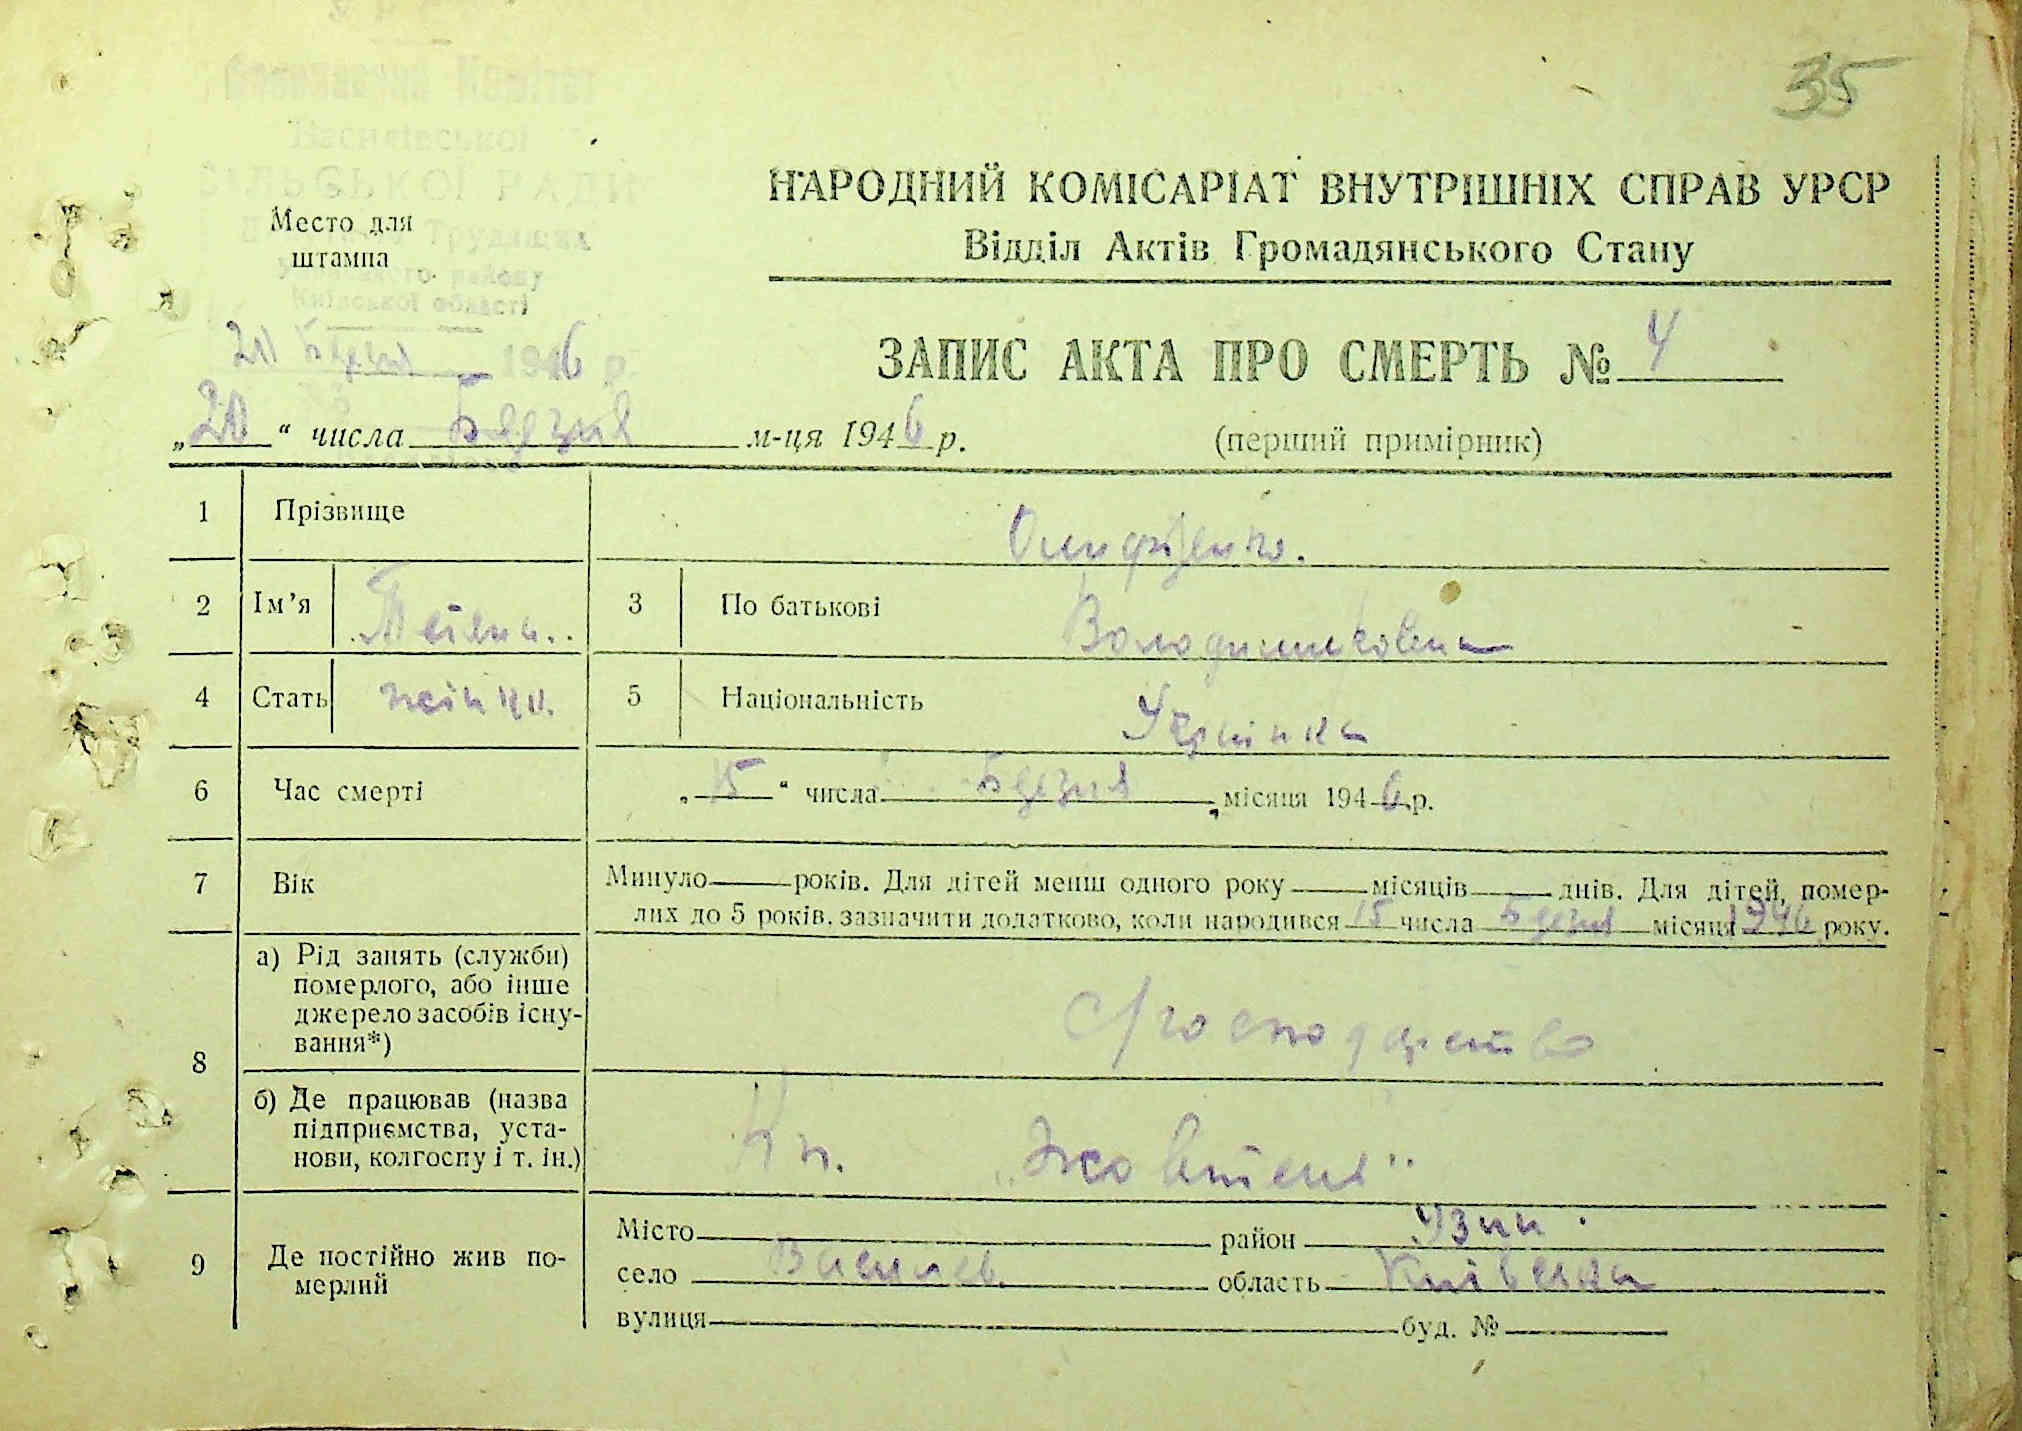 35
Виконавчий Комітет
Василівської
СІЛЬСЬКОЇ РАДИ
Трудящих
району
Київської області
Место для
штампа
20 Березня 1946 р.
НАРОДНИЙ КОМІСАРІАТ ВНУТРІШНІХ СПРАВ УРСР
Відділ Актів Громадянського Стану
ЗАПИС АКТА ПРО СМЕРТЬ № 4
„20“ числа Березня м-ця 1946 р.
(перший примірник)
1 Прізвище
2 Ім’я Тетяна
3 По батькові Володимировна
4 Стать жіноч.
5 Національність Українка
6 Час смерті „15“ числа Березня місяця 1946 р.
7 Вік Минуло років. Для дітей менш одного року місяців днів. Для дітей, помер-
лих до 5 років, зазначити додатково, коли народився 15 числа Березня місяця 1946 року.
8 а) Рід занять (служби)
померлого, або інше
джерело засобів існу-
вання*)
с/господарство
б) Де працював (назва
підприємства, уста-
нови, колгоспу і т. ін.)
„Жовтень“
9 Де постійно жив по-
мерлий
Місто район Узин
село Василев. область Київська
вулиця буд. №